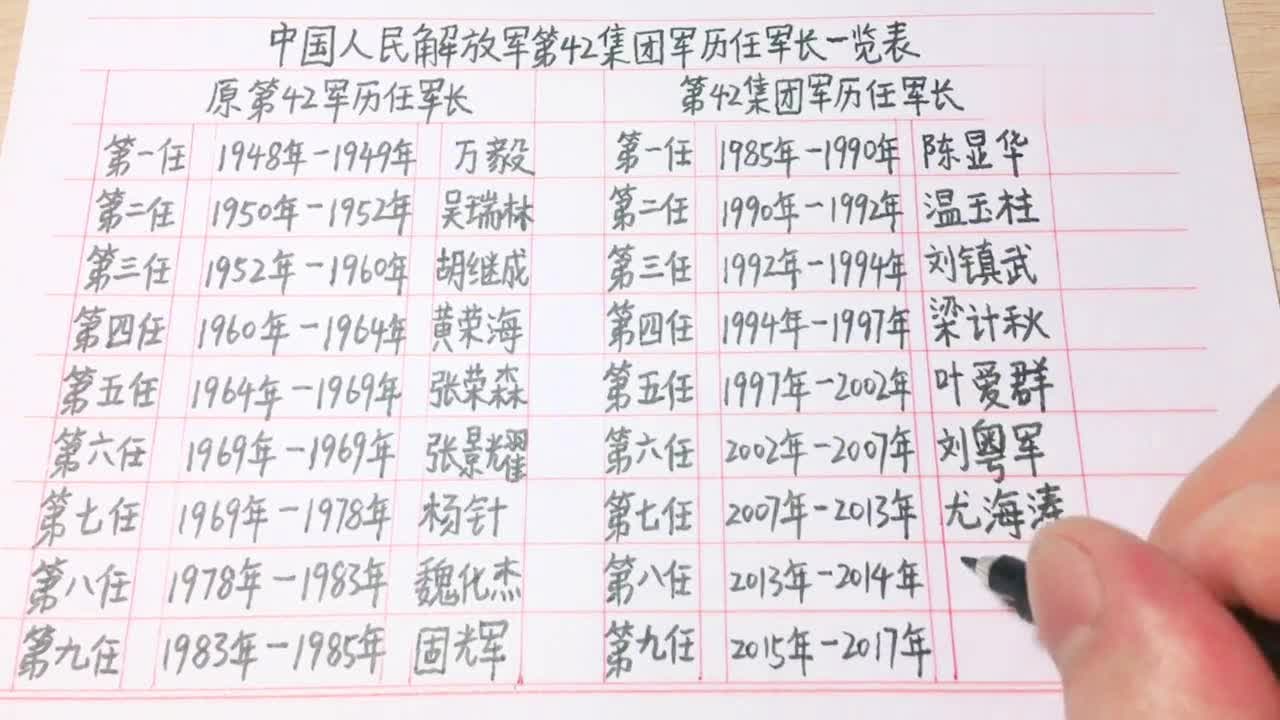 中国人民解放军第42集团军历任军长一览表
原第42军历任军长 第42集团军历任军长
第一任 1948年-1949年 万毅 第一任 1985年-1990年 陈显华
第二任 1950年-1952年 吴瑞林 第二任 1990年-1992年 温玉柱
第三任 1952年-1960年 胡继成 第三任 1992年-1994年 刘镇武
第四任 1960年-1964年 黄荣海 第四任 1994年-1997年 梁计秋
第五任 1964年-1969年 张荣森 第五任 1997年-2002年 叶爱群
第六任 1969年-1969年 张景耀 第六任 2002年-2007年 刘粤军
第七任 1969年-1978年 杨针 第七任 2007年-2013年 尤海涛
第八任 1978年-1983年 魏化杰 第八任 2013年-2014年
第九任 1983年-1985年 固光辉 第九任 2015年-2017年